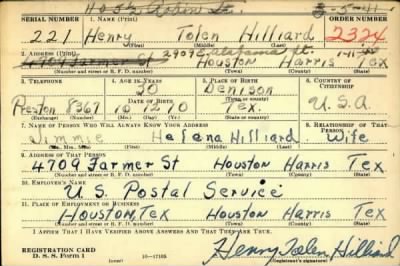 3-5-41
SERIAL NUMBER 1. NAME (Print) ORDER NUMBER
221 Henry Tolen Hilliard 2324
(First) (Middle) (Last)
2. ADDRESS (Print) 2909 Alabama St.
4709 Farmer St Houston Harris Tex
(Number and street or R. F. D. number) (Town) (County) (State)
3. TELEPHONE 4. AGE IN YEARS 5. PLACE OF BIRTH 6. COUNTRY OF CITIZENSHIP
30 Denison
Preston 8367 10 12 10 Tex. U.S.A.
(Exchange) (Number) (Mo.) (Day) (Yr.) (State or country)
7. NAME OF PERSON WHO WILL ALWAYS KNOW YOUR ADDRESS 8. RELATIONSHIP OF THAT PERSON
Jimmie Helena Hilliard Wife
9. ADDRESS OF THAT PERSON
4709 Farmer St Houston Harris Tex
(Number and street or R. F. D. number) (Town) (County) (State)
10. EMPLOYER'S NAME
U.S. Postal Service
11. PLACE OF EMPLOYMENT OR BUSINESS
Houston, Tex Houston Harris Tex
(Number and street or R. F. D. number) (Town) (County) (State)
I AFFIRM THAT I HAVE VERIFIED ABOVE ANSWERS AND THAT THEY ARE TRUE.
REGISTRATION CARD
D. S. S. Form 1 (over) 16-17105 Henry Tolen Hilliard
(Registrant's signature)